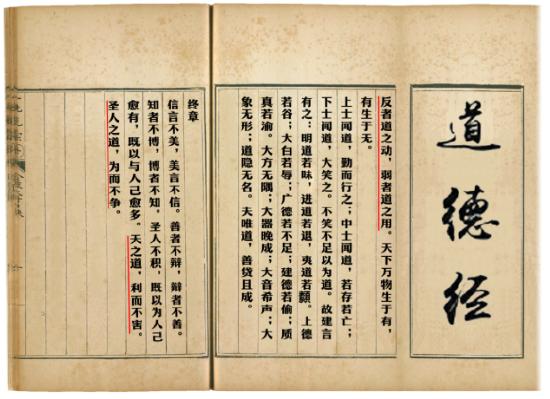 道德经
反者道之动，弱者道之用。天下万物生于有，
有生于无。
上士闻道，勤而行之；中士闻道，若存若亡；
下士闻道，大笑之。不笑不足以为道。故建言
有之：明道若昧，进道若退，夷道若纇。上德
若谷；大白若辱；广德若不足；建德若偷；质
真若渝。大方无隅；大器晚成；大音希声；大
象无形；道隐无名。夫唯道，善贷且成。
终章
信言不美，美言不信。善者不辩，辩者不善。
知者不博，博者不知，圣人不积，既以为人己
愈有，既以与人己愈多。天之道，利而不害。
圣人之道，为而不争。